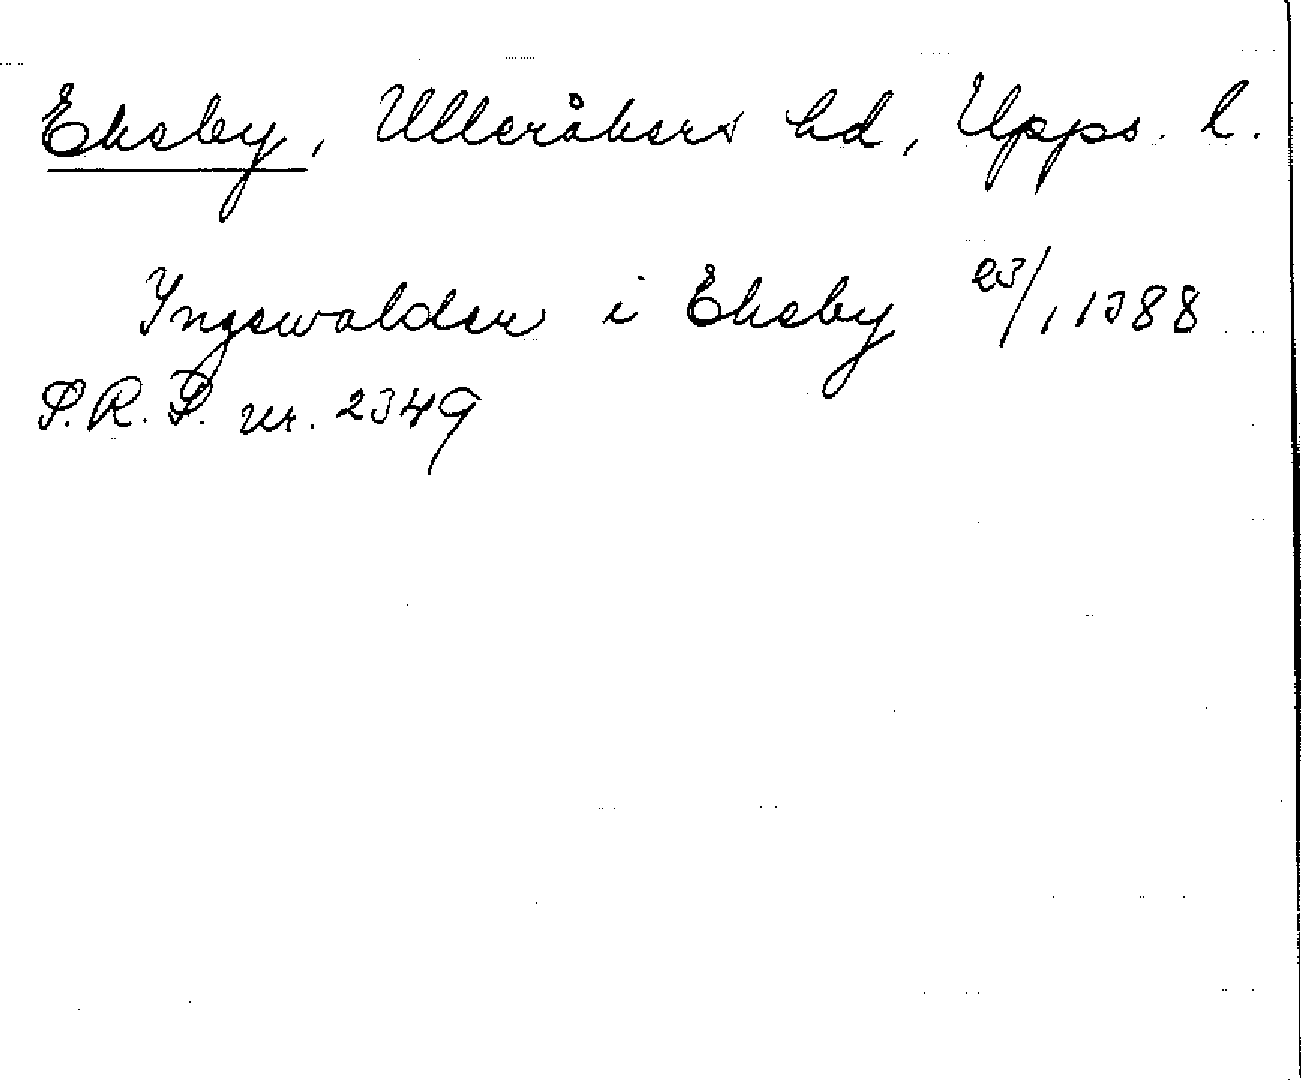 Eksby, Ulleråkers hd, Upps. l.
Ingewalder i Eksby 23/1 1388
S.R.P. nr. 2349